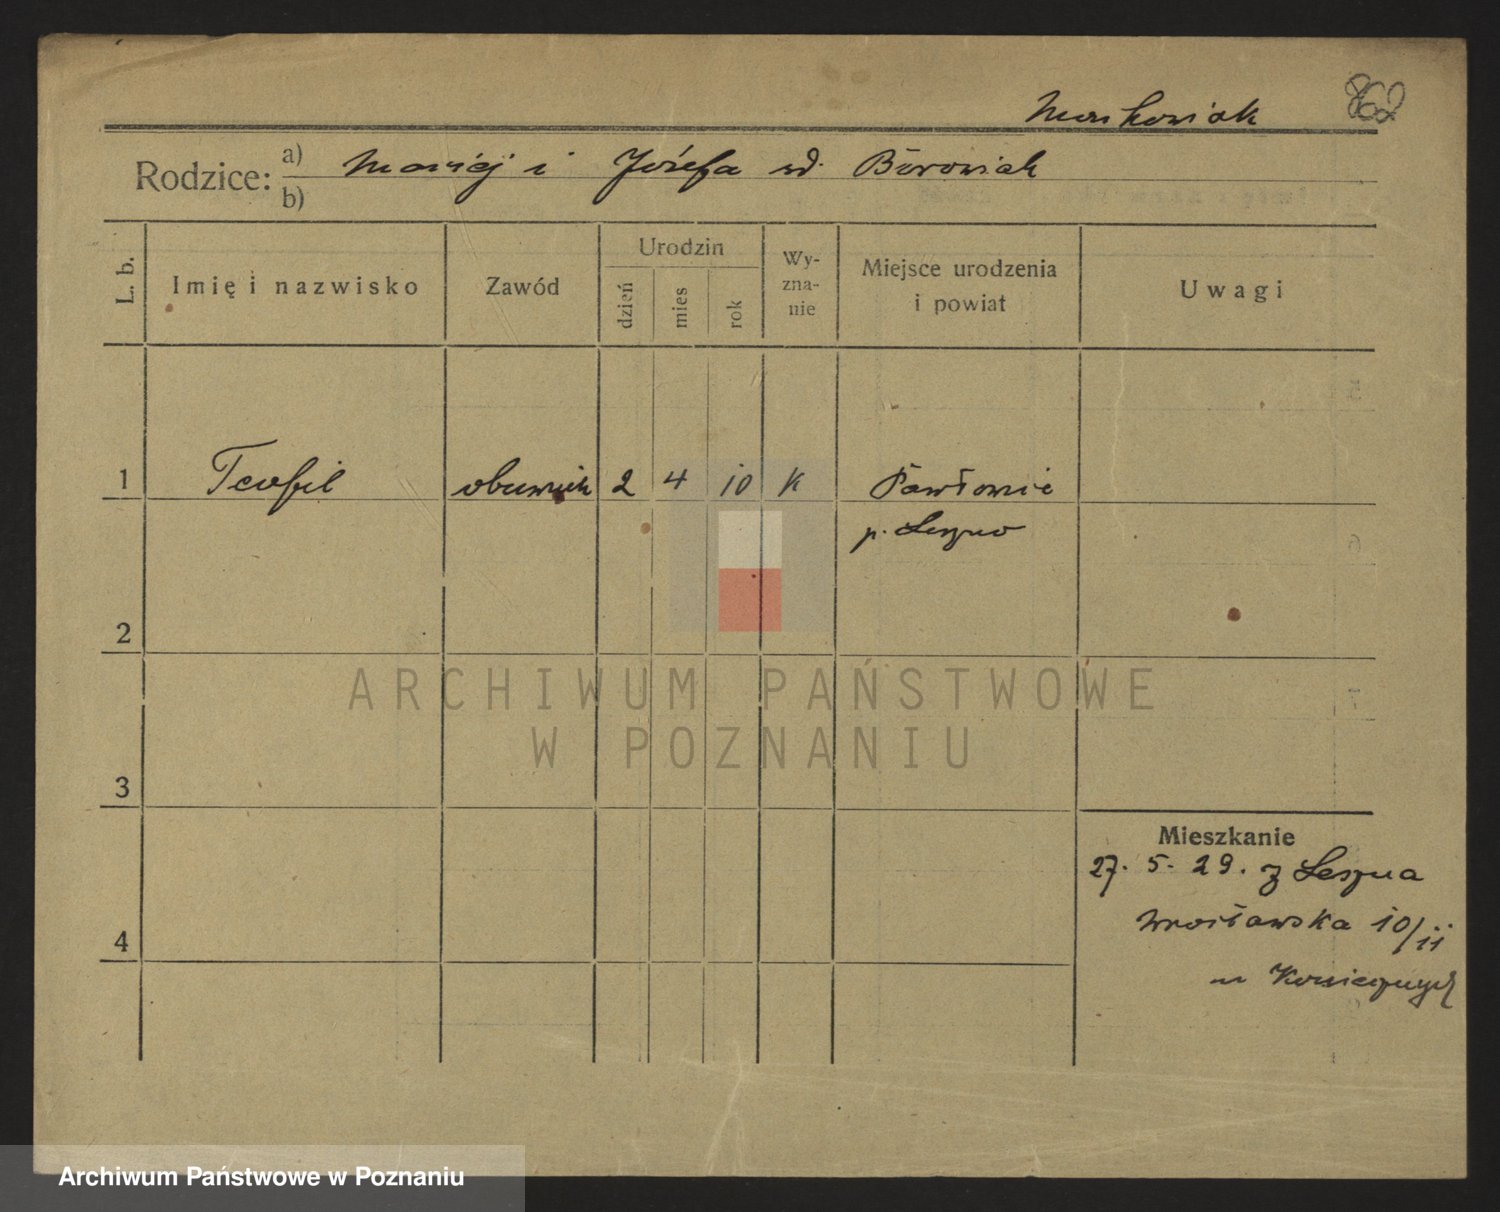 Markowiak
862
Rodzice: a) Maciej i Józefa wd. Borowiak
b)
L. b. Imię i nazwisko Zawód Urodzin dzień mies rok Wy-zna-nie Miejsce urodzenia i powiat Uwagi
1 Teofil obuwnik 2 4 10 K Pawłowic
p. Leszno
2
ARCHIWUM PAŃSTWOWE
W POZNANIU
3
Mieszkanie
27. 5. 29. z Leszna
Wrocławska 10/11
4
u
Archiwum Państwowe w Poznaniu